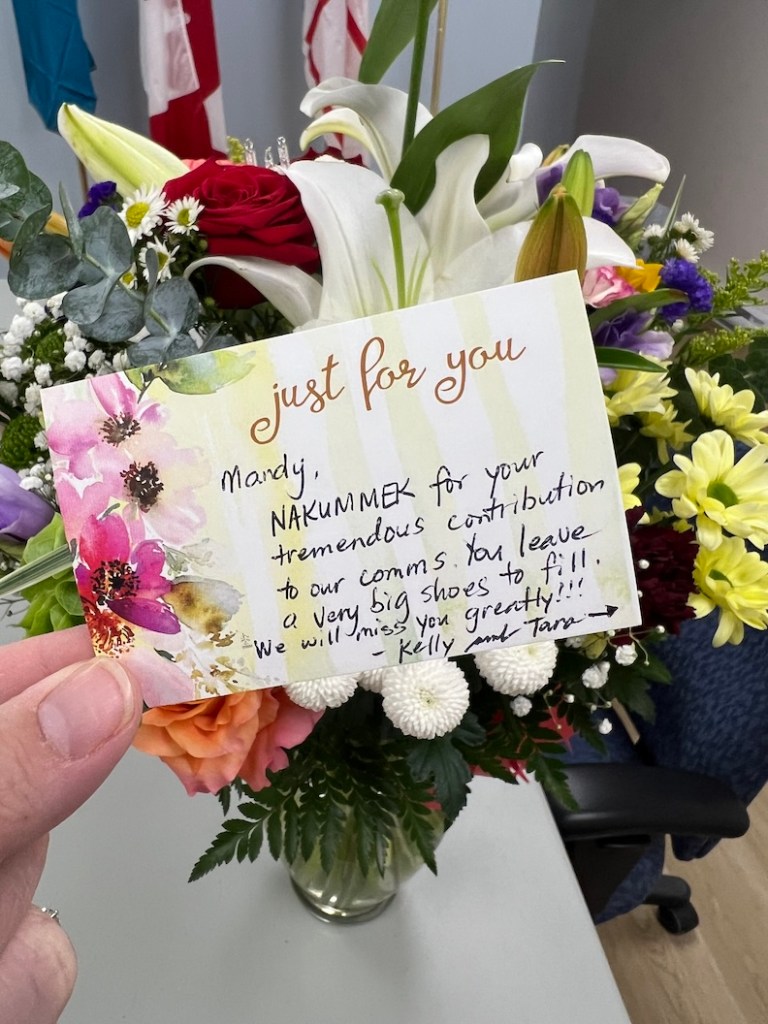 just for you
Mandy,
NAKUMMEK for your
tremendous contribution
to our comms. You leave
a very big shoes to fill.
We will miss you greatly!!!
- Kelly and Tara →